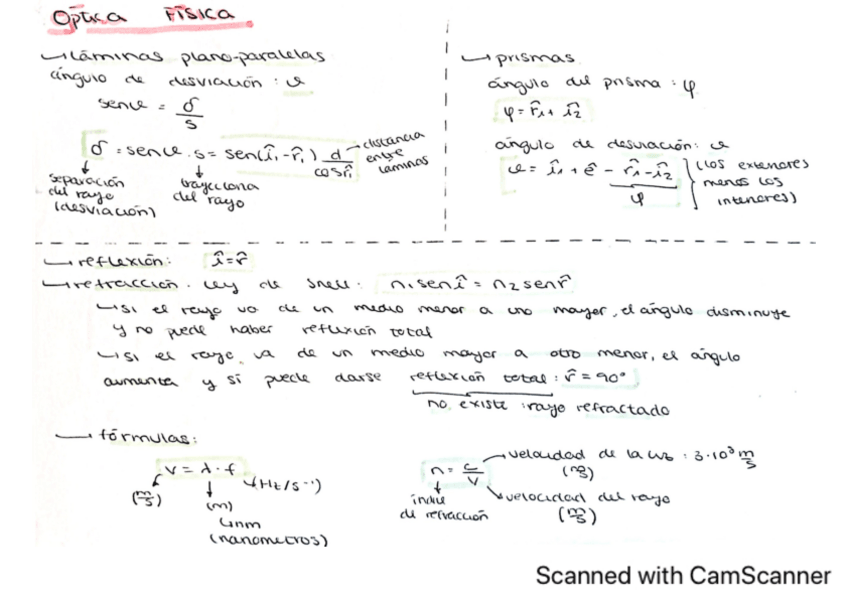 Óptica FÍSICA
→ láminas plano-paralelas
ángulo de desviación: φ
senφ = δ/s
δ = senφ · s = sen(î₁ - r̂₁) d/cosr̂₁ → distancia entre láminas
separación del rayo (desviación)
trayectoria del rayo
→ prismas
ángulo del prisma: φ
φ = r̂₁ + î₂
ángulo de desviación: φ
φ = î₁ + ê - r̂₁ - î₂ } (los exteriores menos los interiores)
φ
→ reflexión: î = r̂
→ refracción. Ley de Snell: n₁senî = n₂senr̂
→ si el rayo va de un medio menor a uno mayor, el ángulo disminuye
y no puede haber reflexión total
→ si el rayo va de un medio mayor a otro menor, el ángulo
aumenta y sí puede darse reflexión total: r̂ = 90°
no existe rayo refractado
→ fórmulas:
v = λ · f
(m/s)
(m)
(Hz/s⁻¹)
nm
(nanometros)
n = c/v
velocidad de la luz: 3·10⁸ m/s
(m/s)
índice de refracción
velocidad del rayo
(m/s)
Scanned with CamScanner